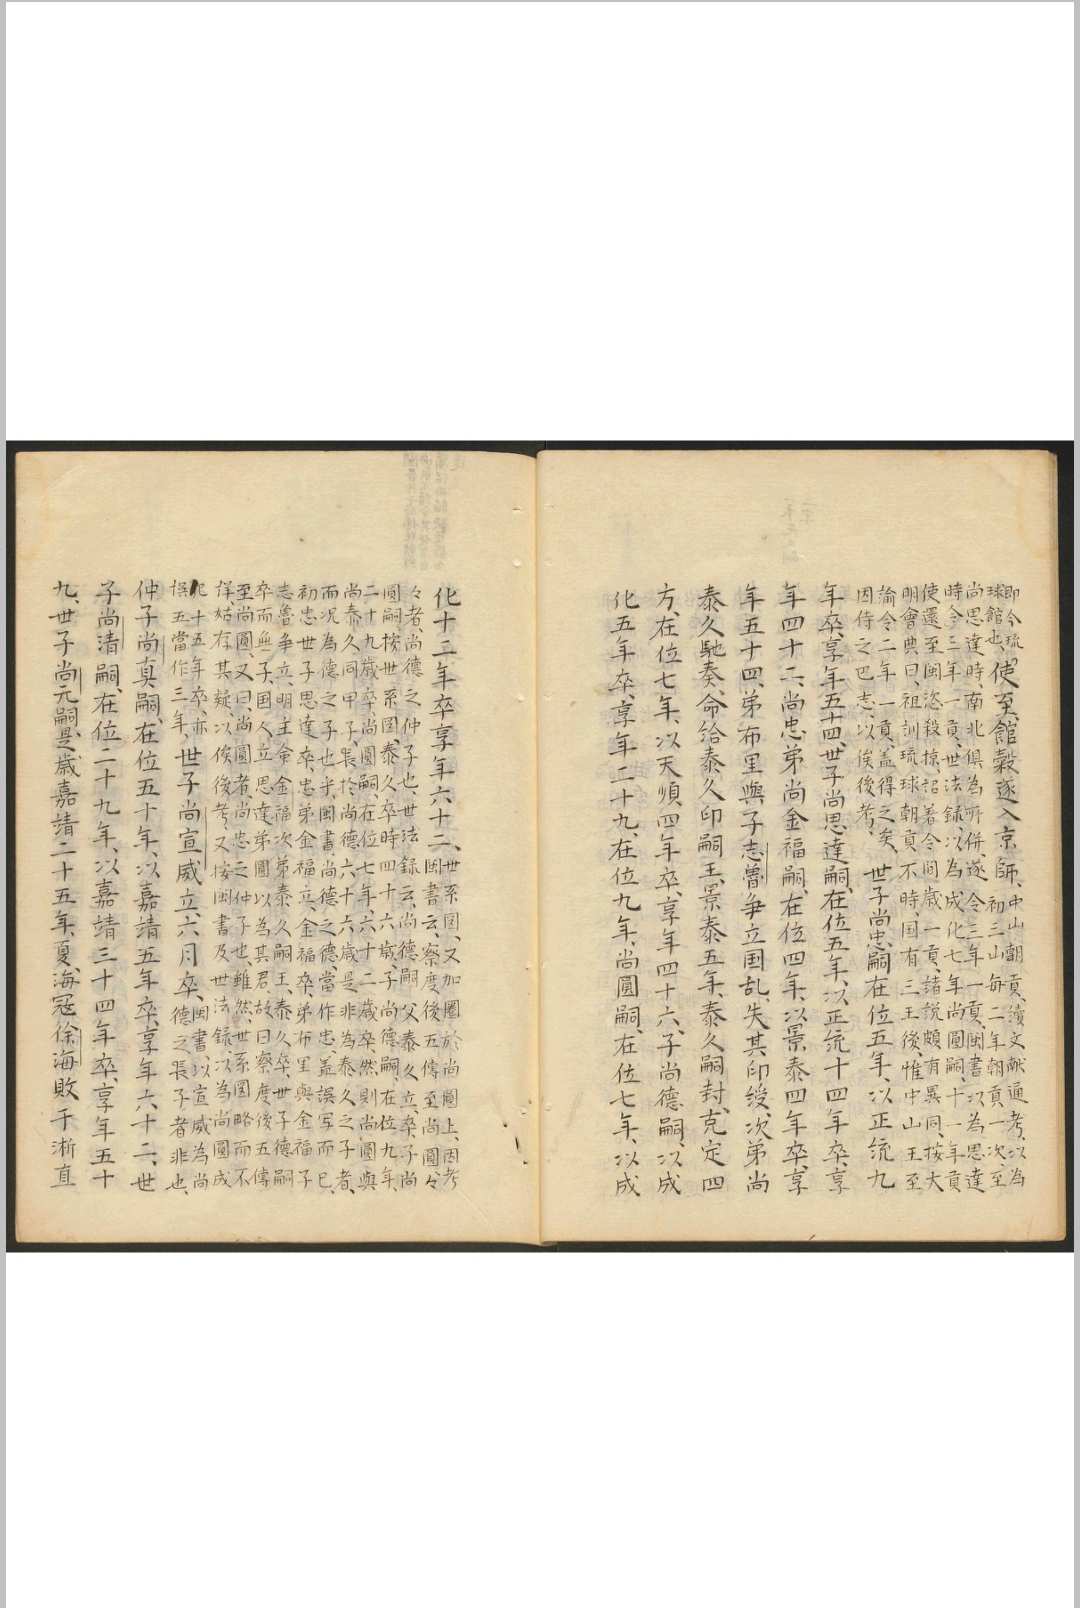 即今琉
球館也、使至館穀遂入京師、中山朝貢續文献通考、以為
尚思達時、南北俱為所併、遂令三年一貢、閩書以為思達
時令三年一貢、世法録、以為成化七年尚圓嗣、十一年貢
使還至閩恣殺掠、詔著令間歲一貢、諸説頗有異同、按大
明會典曰、祖訓琉球朝貢不時、国有三王後、惟中山王至
論令二年一貢、盖得之矣、
因侍之巴志、以俟後考、世子尚忠嗣在位五年、以正統九
年卒、享年五十四、世子尚思達嗣、在位五年、以正統十四年卒、享
年四十二、尚忠弟尚金福嗣、在位四年、以景泰四年卒、享
年五十四、弟布里與子志魯争立国乱、失其印綬、次弟尚
泰久馳奏、命給泰久印嗣王、景泰五年、泰久嗣封、克定四
方、在位七年、以天順四年卒、享年四十六、子尚德嗣、以成
化五年卒、享年二十九、在位九年、尚圓嗣、在位七年、以成
化十二年卒、享年六十二、世系图、又加圏於尚圓上、因考
閩書云、察度後五傳至尚圓、々
々者、尚德之仲子也、世法録云、尚德嗣父泰久立、卒、子尚
圓嗣、按世系图、泰久卒時四十六歳、子尚德嗣、在位九年、
二十九歳卒、尚圓嗣、在位七年、六十二歳卒、然則尚圓與
尚泰久同甲子、長於尚德六十六歳、是非為泰久之子者、
而况為德之子也乎、閩書、尚德之德當作忠、盖誤写而已、
初忠世子思達卒、忠弟金福立、金福卒、弟布里與金福子
志魯争立、明主命金福次弟泰久嗣王、泰久卒、世子德嗣
卒而無子、国人立思達弟圓以為其君、故曰察度後五傳
至尚圓、又曰、尚圓者、尚忠之仲子也、雖然、世系图略而不
詳、姑存其疑、以俟後考、又按閩書及世法録、以為尚圓成
化十五年卒、亦
誤、五當作三年、世子尚宣威立、六月卒、閩書、以宣威為尚
德之長子者非也、
仲子尚真嗣、在位五十年、以嘉靖五年卒、享年六十二、世
子尚清嗣、在位二十九年、以嘉靖三十四年卒、享年五十
九、世子尚元嗣、是歳嘉靖二十五年、夏、海冦徐海敗于淅直